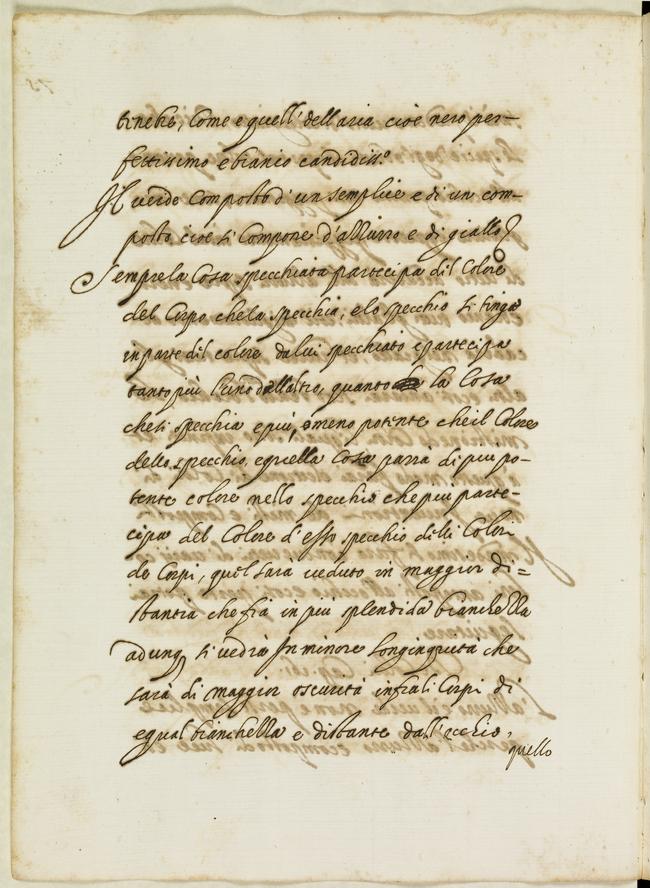 tinebre, Come e quell' dell aria cioè nero per-
fettissimo e bianco candidiss.º
Il verde Composto d' un semplice e di un com-
posto cioè si Compone d'azzurro e di giallo
Sempre la Cosa specchiata partecipa del Colore
del Corpo che la specchia, e lo specchio si tinge
in parte del colore da lui specchiato e partecipa
tanto più l'uno dall'altro, quanto la Cosa
che si specchia e più, o meno potente che il Colore
dello specchio, e quella Cosa parrà di più po-
tente colore nello specchio che più parte-
cipa del Colore d'esso specchio delli Colori
de Corpi, quel sarà veduto in maggior di=
stantia che fia in più splendida bianchezza
adunq si vedrà In minore longinquita che
sarà di maggior oscurità infra li Corpi di
egual bianchezza e distante dall'occhio,
quello